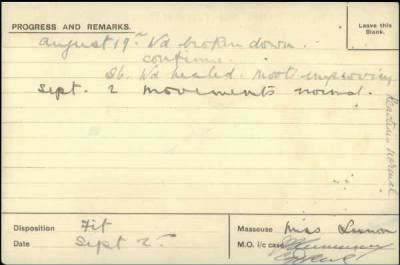 PROGRESS AND REMARKS.
Leave this
Blank.
August 19. Wd broken down.
continue
26. Wd healed. Moots improving
Sept. 2 movements normal.
Reaction normal
Disposition Fit
Date Sept 2.
Masseuse Miss
M.O. i/c case